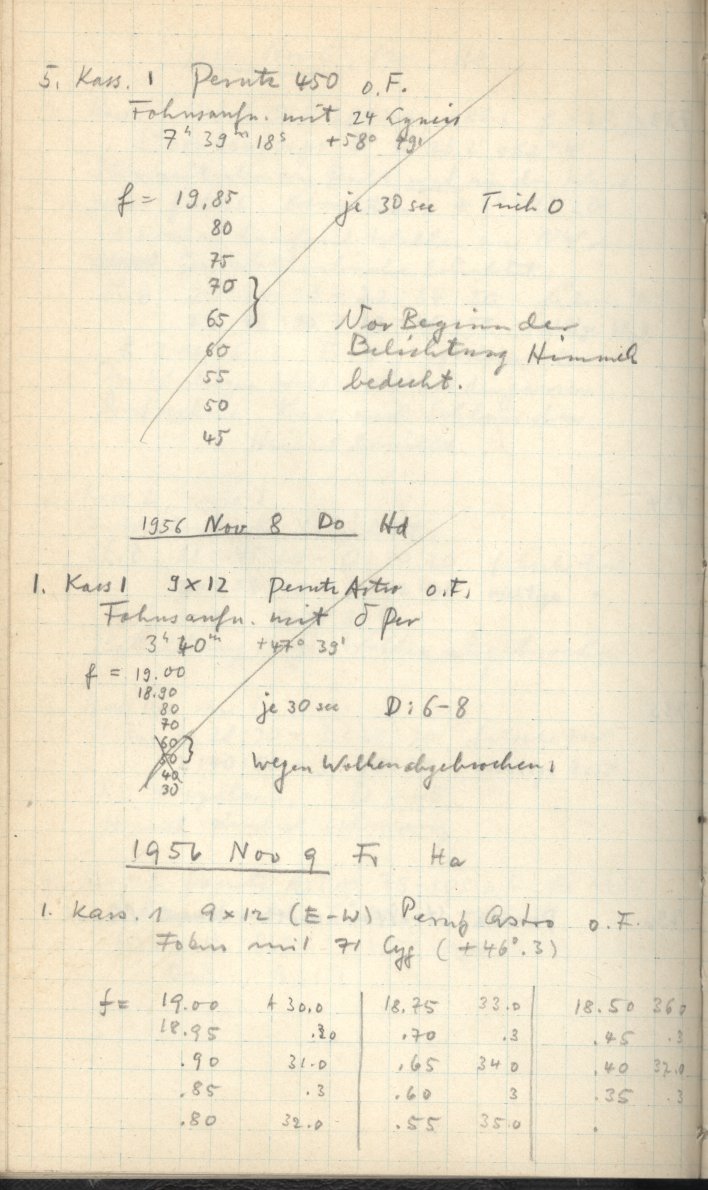 5. Kass. 1 Perutz 450 o.F.
Fokusaufn. mit 24 Lyncis
7h 39m 18s +58° 49'
f = 19.85 je 30 sec Trüb 0
80
75
70
65 Vor Beginn der
60 Belichtung Himmel
55 bedeckt.
50
45
1956 Nov 8 Do Hd
1. Kass 1 9x12 Perutz Astro o.F.
Fokusaufn. mit δ Per
3h 40m +47° 39'
f = 19.00
18.90
80 je 30 sec D: 6-8
70
60
50 wegen Wolken abgebrochen.
40
30
1956 Nov 9 Fr Ha
1. Kass. 1 9x12 (E-W) Perutz Astro o.F.
Fokus mit 71 Cyg (+46°.3)
f= 19.00 30.0 18.75 33.0 18.50 36.0
18.95 .70 .3 .45 .3
.90 31.0 .65 34.0 .40 37.0
.85 .3 .60 3 .35 .3
.80 32.0 .55 35.0 .